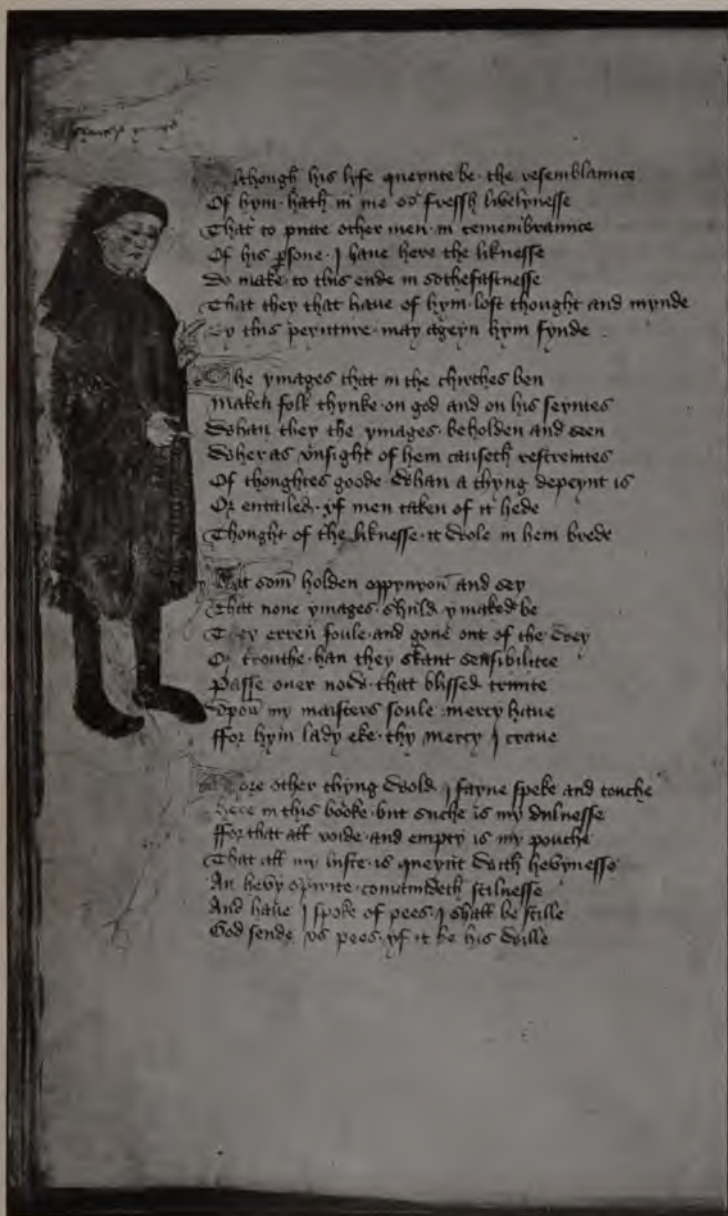 Although his lyfe queynte be the resemblaunce
Of hym hath in me so fressh livelynesse
That to putte other men in remembraunce
Of his psone I haue here the liknesse
Do make to this ende in sothefastnesse
That they that haue of hym lost thought and mynde
By this peynture may ageyn hym fynde
The ymages that in the chirches ben
Maken folk thynke on god and on his seyntes
Whan they the ymages beholden and seen
Wheras vnsight of hem causeth restreintes
Of thoughtes goode Whan a thyng depeynt is
Or entailed yf men taken of it hede
Thought of the liknesse it wole in hem brede
Yit som holden oppynyon and sey
That none ymages shuld ymaked be
They erren foule and gone out of the Wey
Of trouthe han they skant sensibilitee
Passe ouer now that blissed trinite
Vpon my maisters soule mercy haue
Ffor hym lady eke thy mercy I craue
More other thyng Wold I fayne speke and touche
Here in this booke but suche is my dulnesse
Ffor that all voide and empty is my pouche
That all my luste is queynt With hevynesse
An hevy spirite comaundeth stilnesse
And haue I spoke of pees I shall be stille
God sende vs pees yf it be his Wille